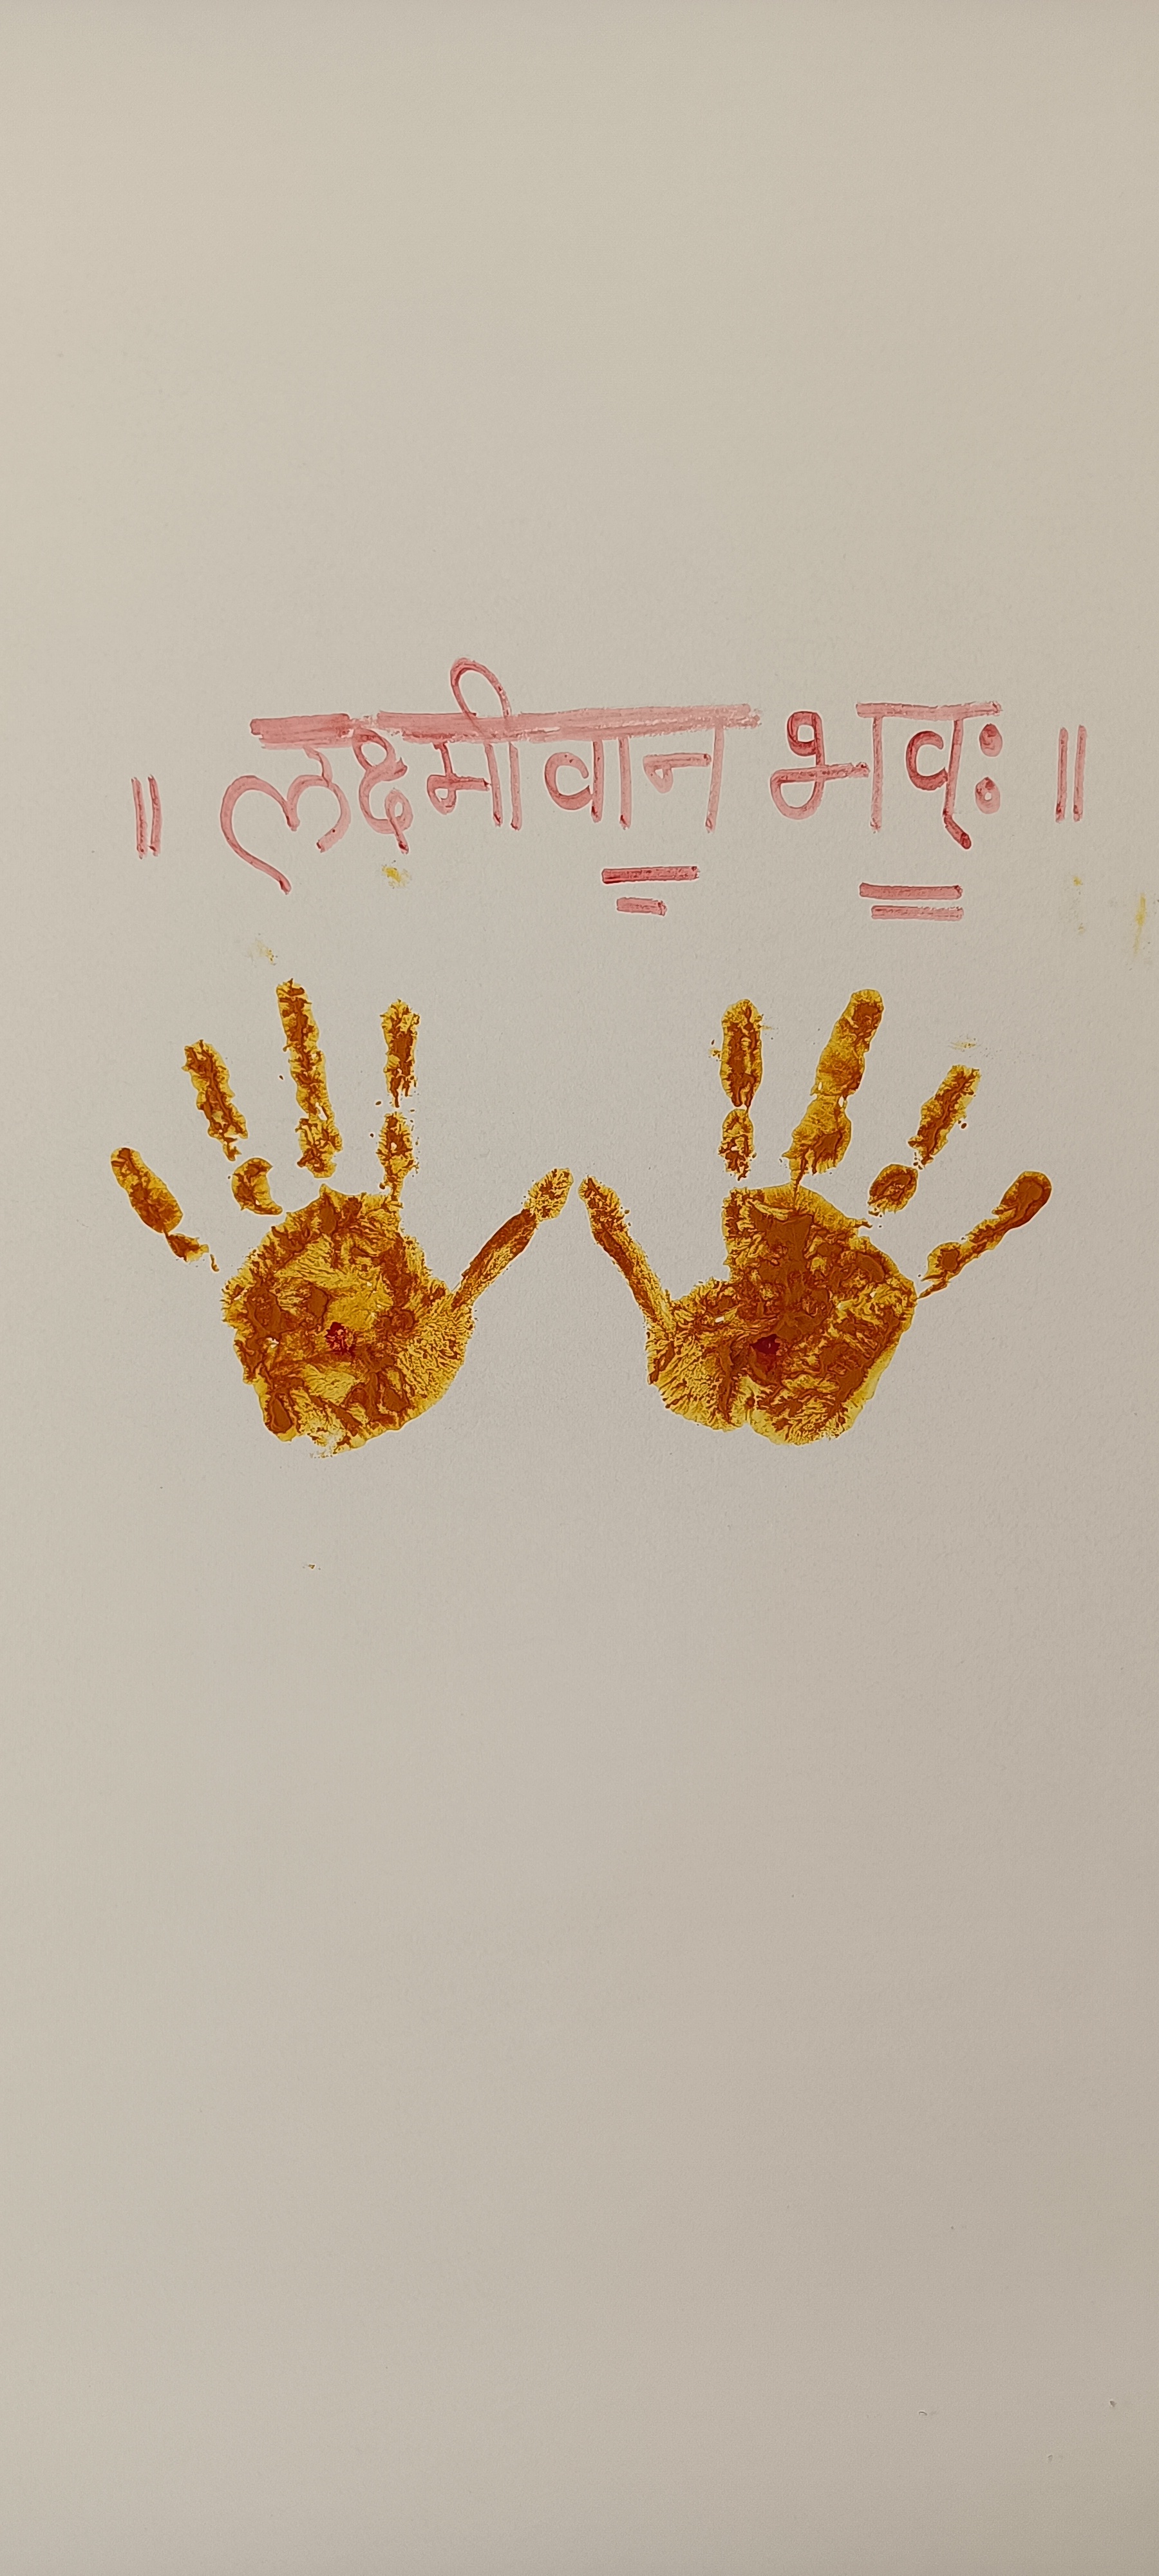 ॥ लक्ष्मीवान भव्ः ॥